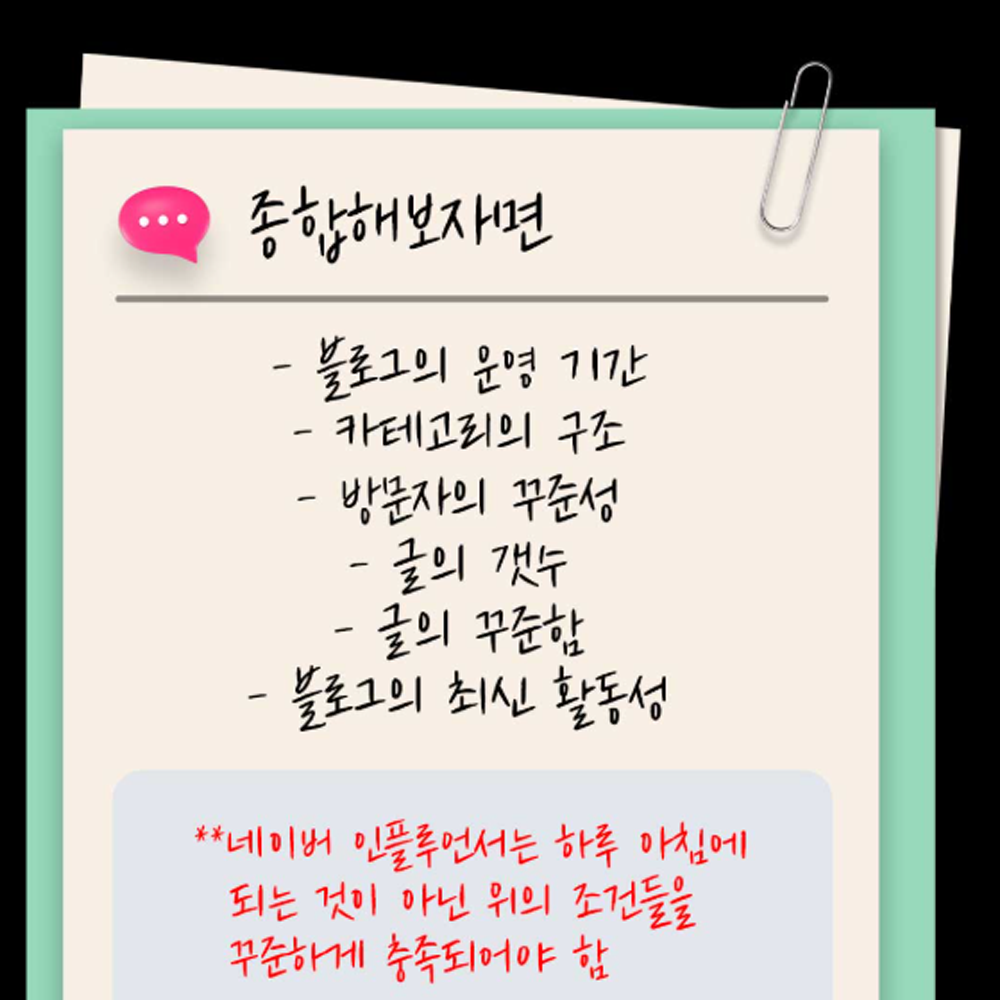 종합해보자면
- 블로그의 운영 기간
- 카테고리의 구조
- 방문자의 꾸준성
- 글의 갯수
- 글의 꾸준함
- 블로그의 최신 활동성
**네이버 인플루언서는 하루 아침에
되는 것이 아닌 위의 조건들을
꾸준하게 충족되어야 함